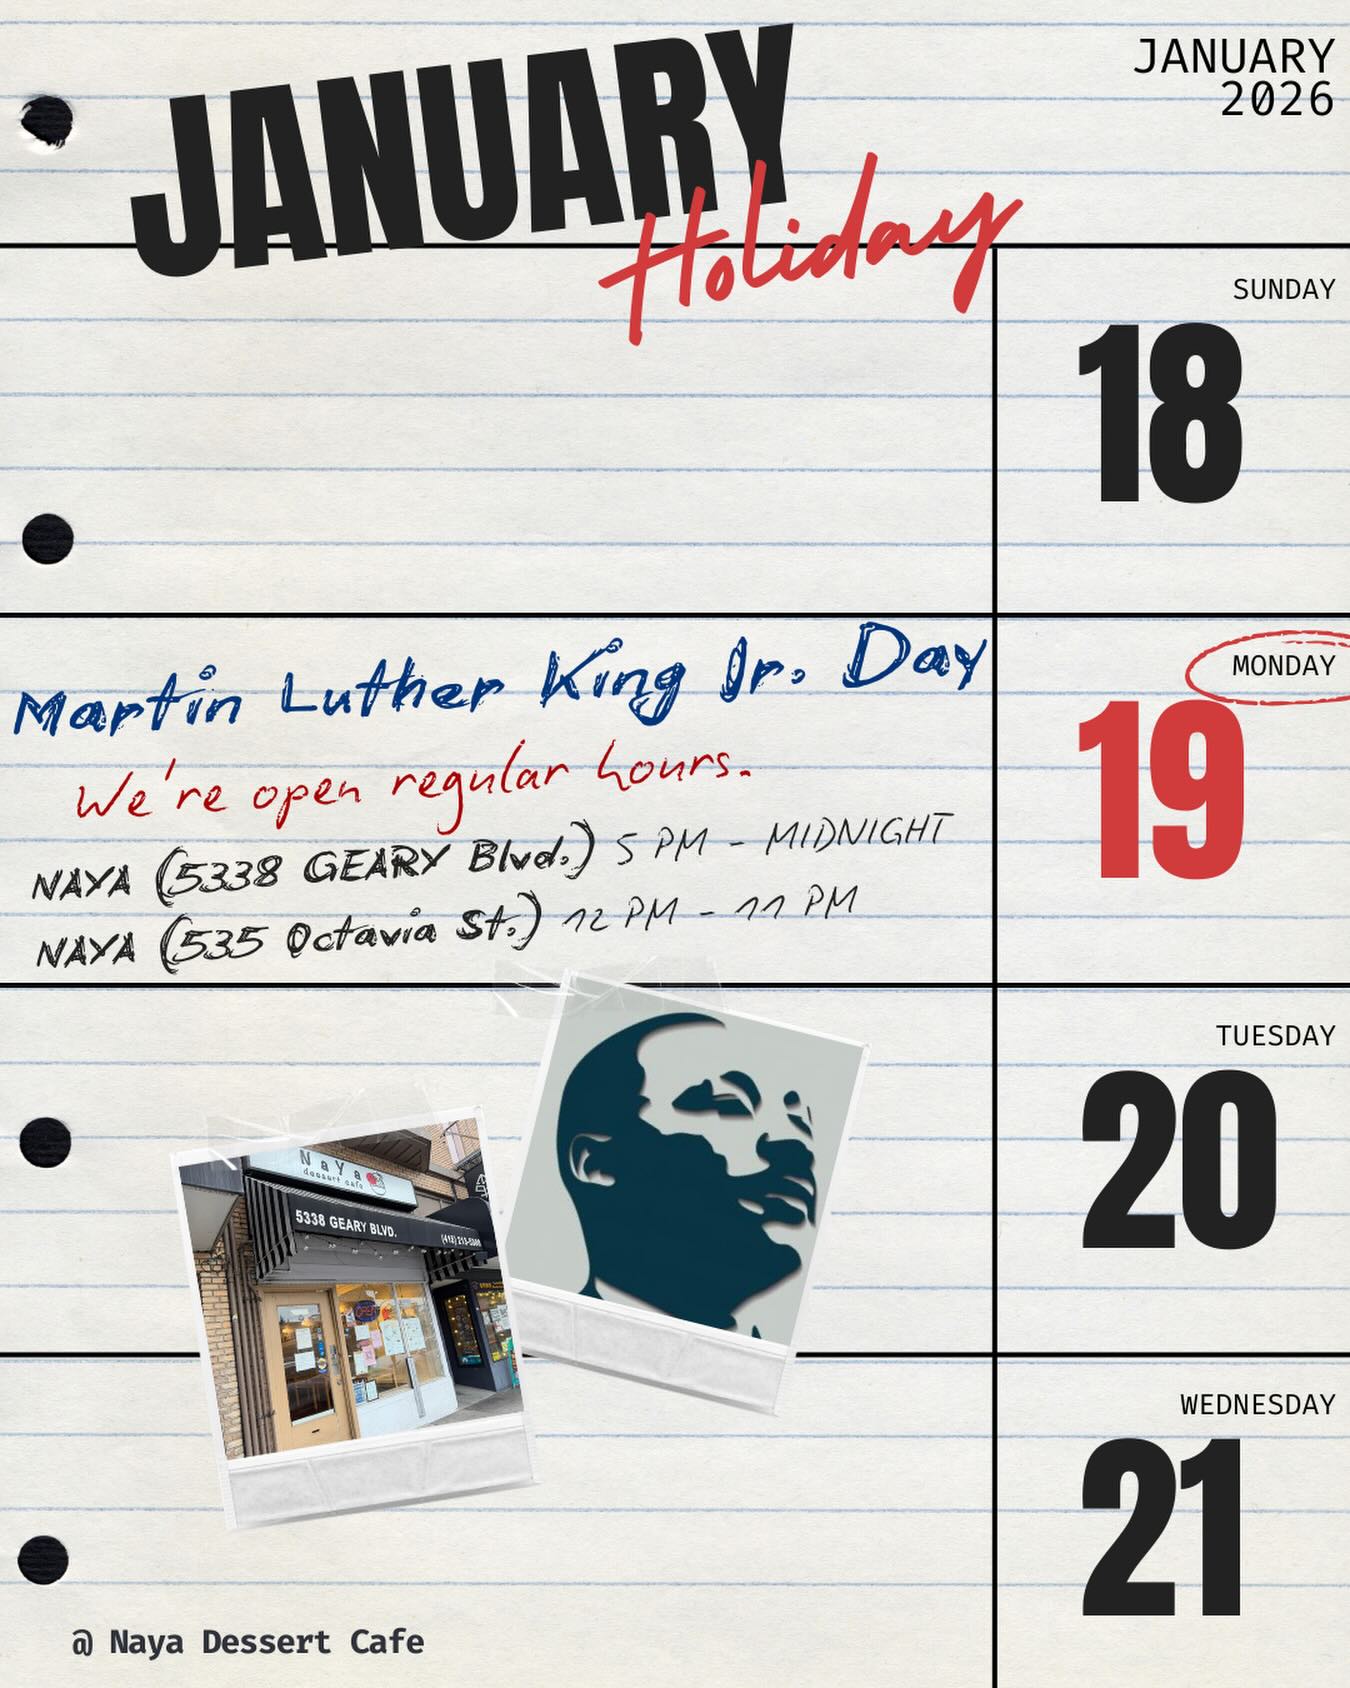 JANUARY
Holiday
JANUARY
2026
SUNDAY
18
Martin Luther King Jr. Day
We're open regular hours.
NAYA (5338 GEARY Blvd.) 5 PM - MIDNIGHT
NAYA (535 Octavia St.) 12 PM - 11 PM
MONDAY
19
TUESDAY
20
NaYa
dessert cafe
5338 GEARY BLVD.
WEDNESDAY
21
@ Naya Dessert Cafe